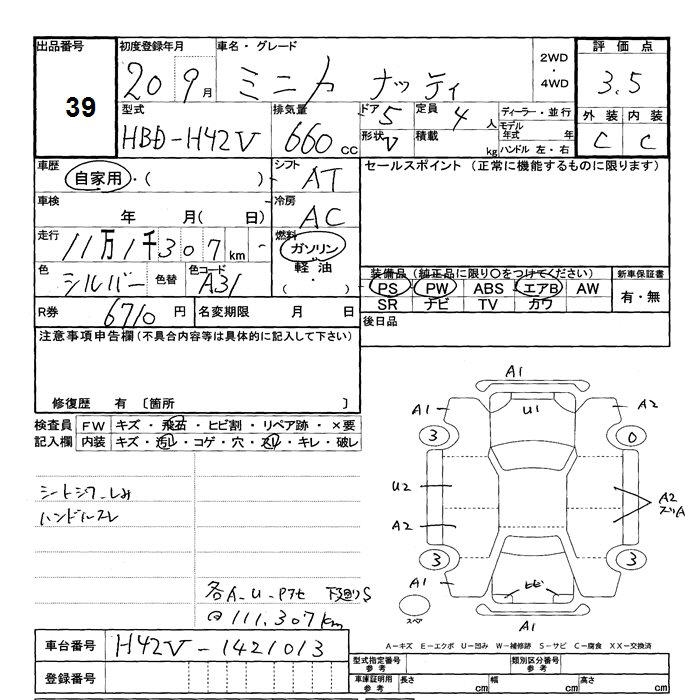 出品番号
39
初度登録年月
20 9月
車名・グレード
ミニカ ナッティ
2WD
・
4WD
評価点
3.5
外装 内装
C C
型式
HBD-H42V
排気量
660cc
ドア 5
形状 V
定員 4人
積載 kg
ディーラー・並行
モデル年式 年
ハンドル 左・右
車歴
自家用・( )
シフト
AT
セールスポイント (正常に機能するものに限ります)
車検 年 月( 日)
冷房
AC
走行
11万1千307km
燃料
ガソリン
軽油
・
( )
色
シルバー
色替
色コード
A31
装備品 (純正品に限り○をつけてください)
PS PW ABS エアB AW
SR ナビ TV カワ
新車保証書
有・無
R券 6710円
名変期限 月 日
後日品
注意事項申告欄(不具合内容等は具体的に記入して下さい)
修復歴 有 〔箇所 〕
検査員記入欄
FW キズ・飛石・ヒビ割・リペア跡・×要
内装 キズ・汚レ・コゲ・穴・スレ・キレ・破レ
シートシワ_しみ
ハンドルスレ
各A_U_Pアセ 下廻りS
@111,307km
A1
A1
U1
A2
3
0
U2
A2
A2
スリA
3
3
A1
ヒビ
スペ
A1
車台番号
H42V-1421013
登録番号
A-キズ E-エクボ U-凹み W-補修跡 S-サビ C-腐食 XX-交換済
型式指定番号 参考
類別区分番号 参考
車庫証明用 参考
長さ cm
幅 cm
高さ cm